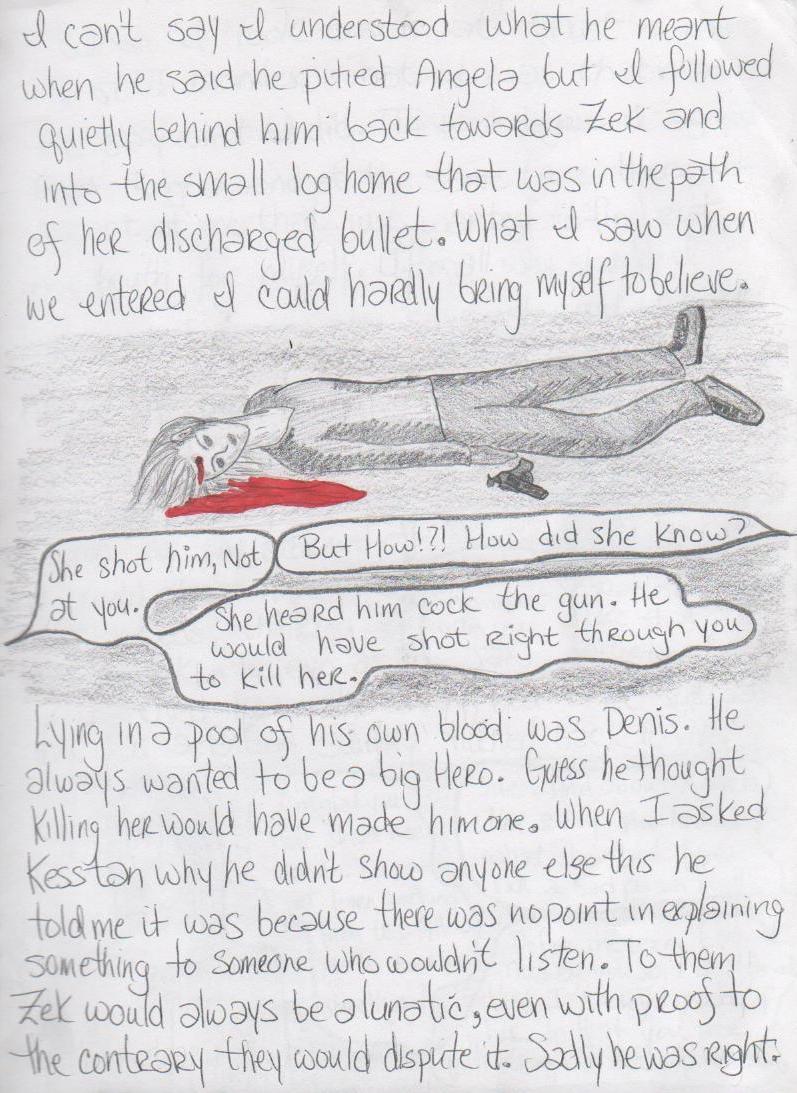 I can't say I understood what he meant
when he said he pitied Angela but I followed
quietly behind him back towards Zek and
into the small log home that was in the path
of her discharged bullet. What I saw when
we entered I could hardly bring myself to believe.
She shot him, Not
at you.
But How!?! How did she know?
She heard him cock the gun. He
would have shot right through you
to kill her.
Lying in a pool of his own blood was Denis. He
always wanted to be a big Hero. Guess he thought
killing her would have made him one. When I asked
Kesstan why he didn't show anyone else this he
told me it was because there was no point in explaining
something to someone who wouldn't listen. To them
Zek would always be a lunatic, even with proof to
the contrary they would dispute it. Sadly he was right.